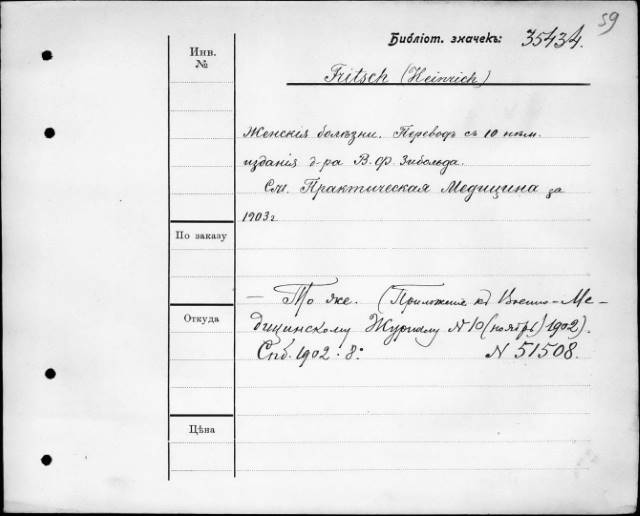 59
Библіот. значекъ: 35434.
Инв.
№
Fritsch (Heinrich)
Женскія болѣзни. Переводъ съ 10 нѣм.
изданія д-ра В. Ф. Зибольда.
См. Практическая Медицина за
1903 г
По заказу
— То же. (Приложеніе къ Военно-Ме-
Откуда
дицинскому Журналу N 10 (ноябрь) 1902).
Спб. 1902. 8: N 51508.
Цѣна